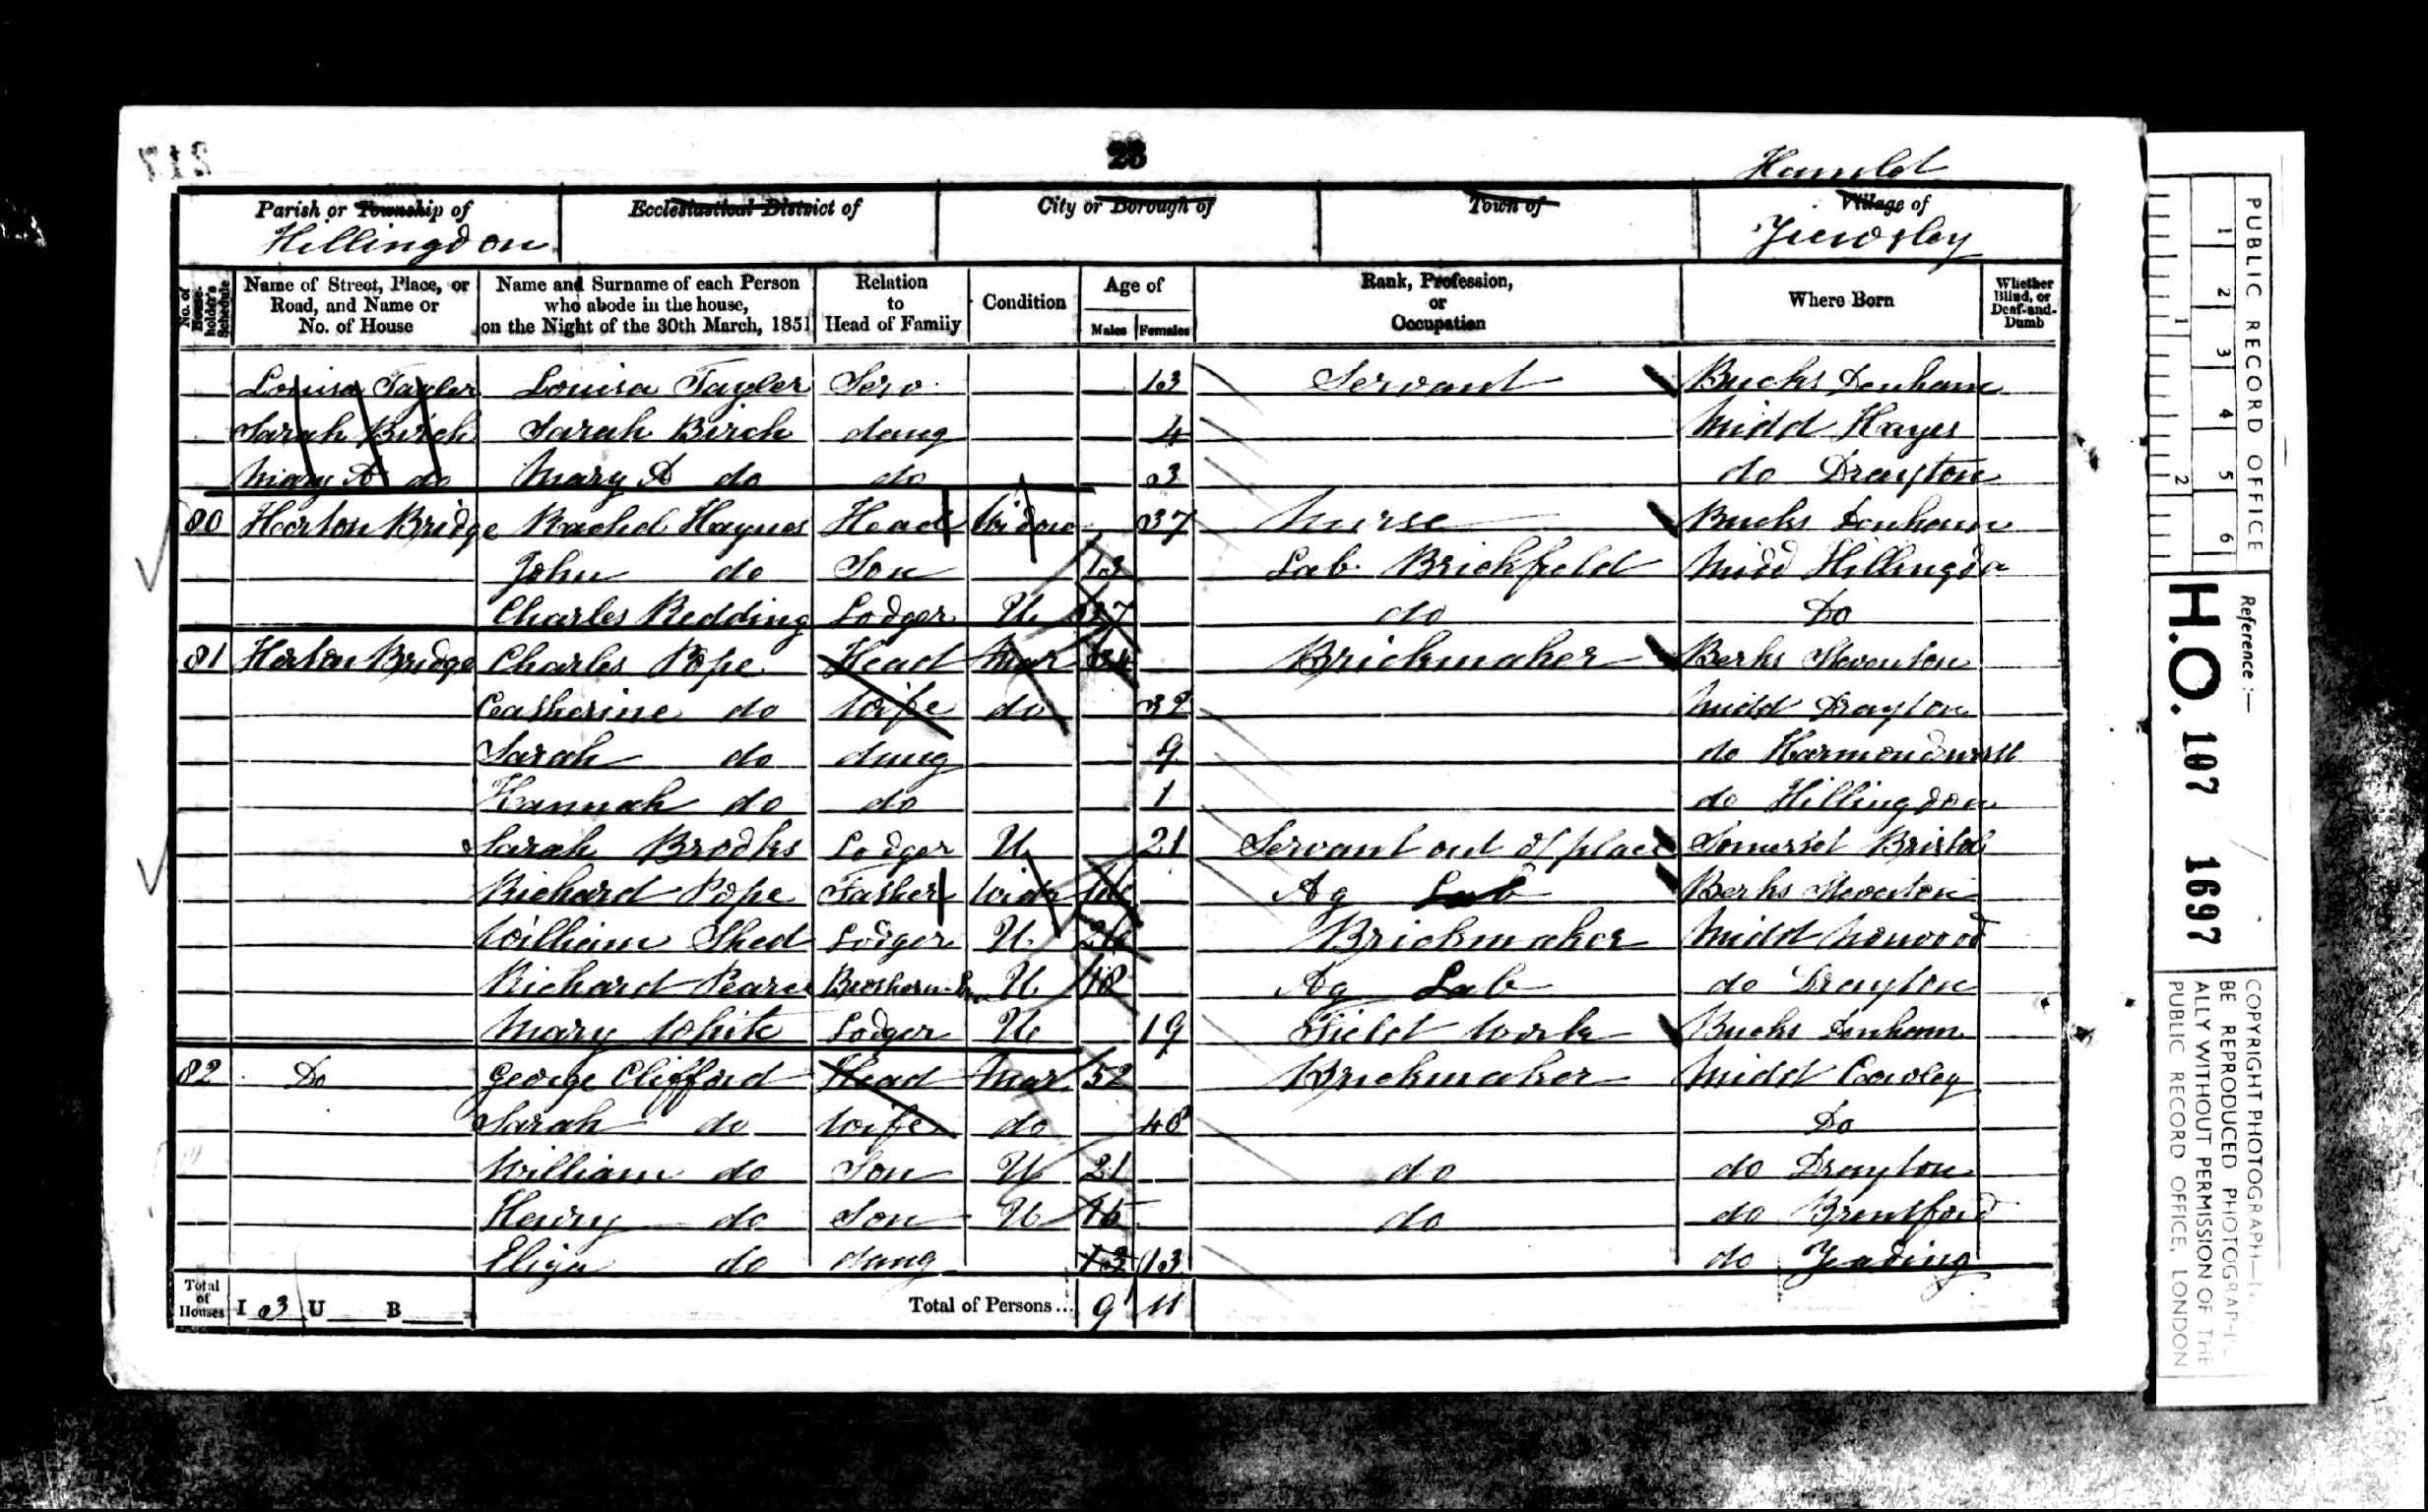 28
Hamlet
Parish or Township of
Ecclesiastical District of
City or Borough of
Town of
Village of
Hillingdon
Yiewsley
No. of Householder's Schedule
Name of Street, Place, or Road, and Name or No. of House
Name and Surname of each Person who abode in the house, on the Night of the 30th March, 1851
Relation to Head of Family
Condition
Age of
Males
Females
Rank, Profession, or Occupation
Where Born
Whether Blind, or Deaf-and-Dumb
Louisa Tayler Louisa Tayler Serv 13 Servant Bucks Denham
Sarah Birch Sarah Birch daug 4 Midd Hayes
Mary A do Mary A do do 3 do Drayton
80 Horton Bridge Rachel Haynes Head Widow 37 Nurse Bucks Denham
John do Son 13 Lab. Brickfield Midd Hillingdon
Charles Redding Lodger U 27 do Do
81 Horton Bridge Charles Pope Head Mar 34 Brickmaker Berks Steventon
Catherine do Wife do 32 Midd Drayton
Sarah do daug 9 do Harmondswort
Hannah do do 1 do Hillingdon
Sarah Brooks Lodger U 21 Servant out of place Somerset Bristol
Richard Pope Father Widr Ag Lab Berks Steventon
William Shed Lodger U Brickmaker Midd Norwood
Richard Pearce Brother in Law U 18 Ag Lab do Drayton
Mary White Lodger U 19 Field Work Bucks Denham
82 Do George Clifford Head Mar 52 Brickmaker Midd Cowley
Sarah do Wife do 48 Do
William do Son U 21 do do Drayton
Henry do Son U 16 do do Brentford
Eliza do daug 13 13 do Yeading
Total of Houses I 3 U B Total of Persons... 9 11
PUBLIC RECORD OFFICE
1 2 3 4 5 6
1 2
Reference :—
H.O. 107 1697
COPYRIGHT PHOTOGRAPH—
BE REPRODUCED PHOTOGRAPHIC
ALLY WITHOUT PERMISSION OF THE
PUBLIC RECORD OFFICE, LONDON